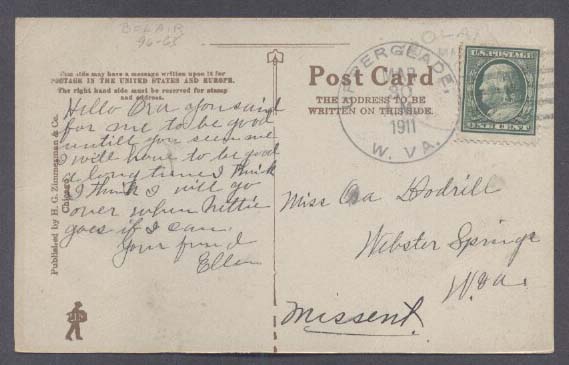 BOLAIR
96-65
This side may have a message written upon it for
POSTAGE IN THE UNITED STATES AND EUROPE.
The right hand side must be reserved for stamp
and address.
Hello Ora you said
for me to be good
untill you seen me
I will have to be good
a long time I think
I think I will go
over when Nettie
goes if I can.
Your frind
Ellen
Published by H. G. Zimmerman & Co.
Chicago
Post Card
THE ADDRESS TO BE
WRITTEN ON THIS SIDE.
MAR
30
1911
W. VA.
U.S. POSTAGE
ONE CENT
Miss Ora Dodrill
Webster Springs
W.va.
Missent.